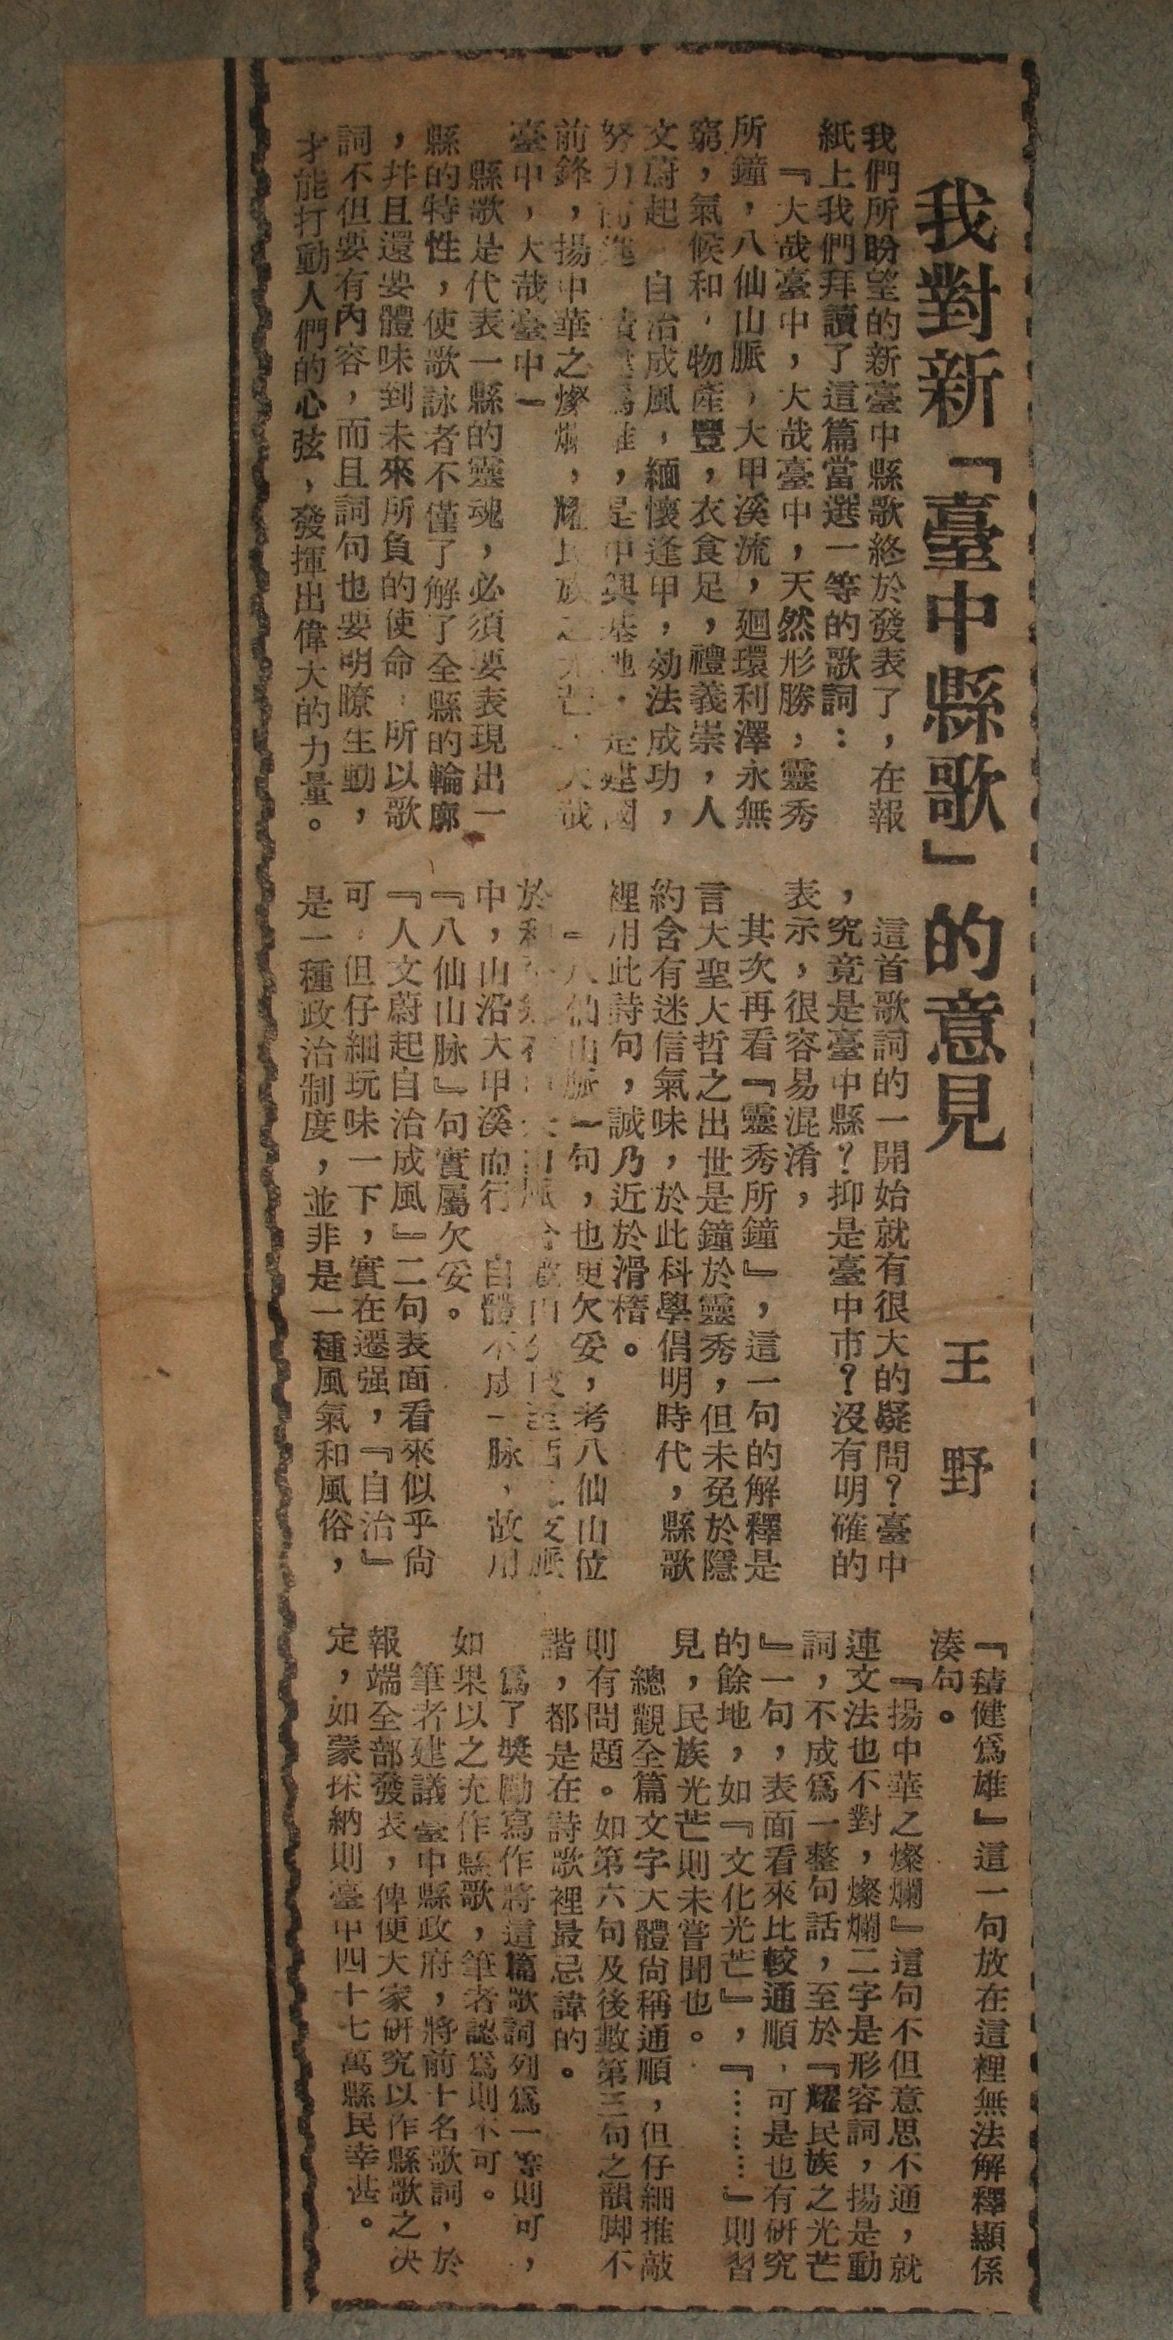 我對新「臺中縣歌」的意見
王野
我們所盼望的新臺中縣歌終於發表了，在報
紙上我們拜讀了這篇當選一等的歌詞：
『大哉臺中，大哉臺中，天然形勝，靈秀
所鐘，八仙山脈，大甲溪流，廻環利澤永無
窮，氣候和，物產豐，衣食足，禮義崇，人
文蔚起 自治成風，緬懷逢甲，効法成功，
努力 ，是中興基地，是建國
前鋒，揚中華之燦爛，耀民族之光芒，大哉
臺中，大哉臺中－
縣歌是代表一縣的靈魂，必須要表現出一
縣的特性，使歌詠者不僅了解了全縣的輪廓
，幷且還要體味到未來所負的使命，所以歌
詞不但要有內容，而且詞句也要明瞭生動，
才能打動人們的心弦，發揮出偉大的力量。
這首歌詞的一開始就有很大的疑問？臺中
，究竟是臺中縣？抑是臺中市？沒有明確的
表示，很容易混淆，
其次再看『靈秀所鐘』，這一句的解釋是
言大聖大哲之出世是鐘於靈秀，但未免於隱
約含有迷信氣味，於此科學倡明時代，縣歌
裡用此詩句，誠乃近於滑稽。
八仙山脈一句，也更欠妥，考八仙山位
於
中，山沿大甲溪而行 自體不成一脉，故用
『八仙山脉』句實屬欠妥。
『人文蔚起自治成風』二句表面看來似乎尙
可，但仔細玩味一下，實在遷强，『自治』
是一種政治制度，並非是一種風氣和風俗，
『積健爲雄』這一句放在這裡無法解釋顯係
湊句。
『揚中華之燦爛』這句不但意思不通，就
連文法也不對，燦爛二字是形容詞，揚是動
詞，不成爲一整句話，至於『耀民族之光芒
』一句，表面看來比較通順，可是也有研究
的餘地，如『文化光芒』，『………』則習
見，民族光芒則未嘗聞也。
總觀全篇文字大體尙稱通順，但仔細推敲
則有問題。如第六句及後數第三句之韻脚不
諧，都是在詩歌裡最忌諱的。
爲了獎勵寫作將這篇歌詞列爲一等則可，
如果以之充作縣歌，筆者認爲則不可。
筆者建議臺中縣政府，將前十名歌詞，於
報端全部發表，俾便大家研究以作縣歌之决
定，如蒙採納則臺中四十七萬縣民幸甚。